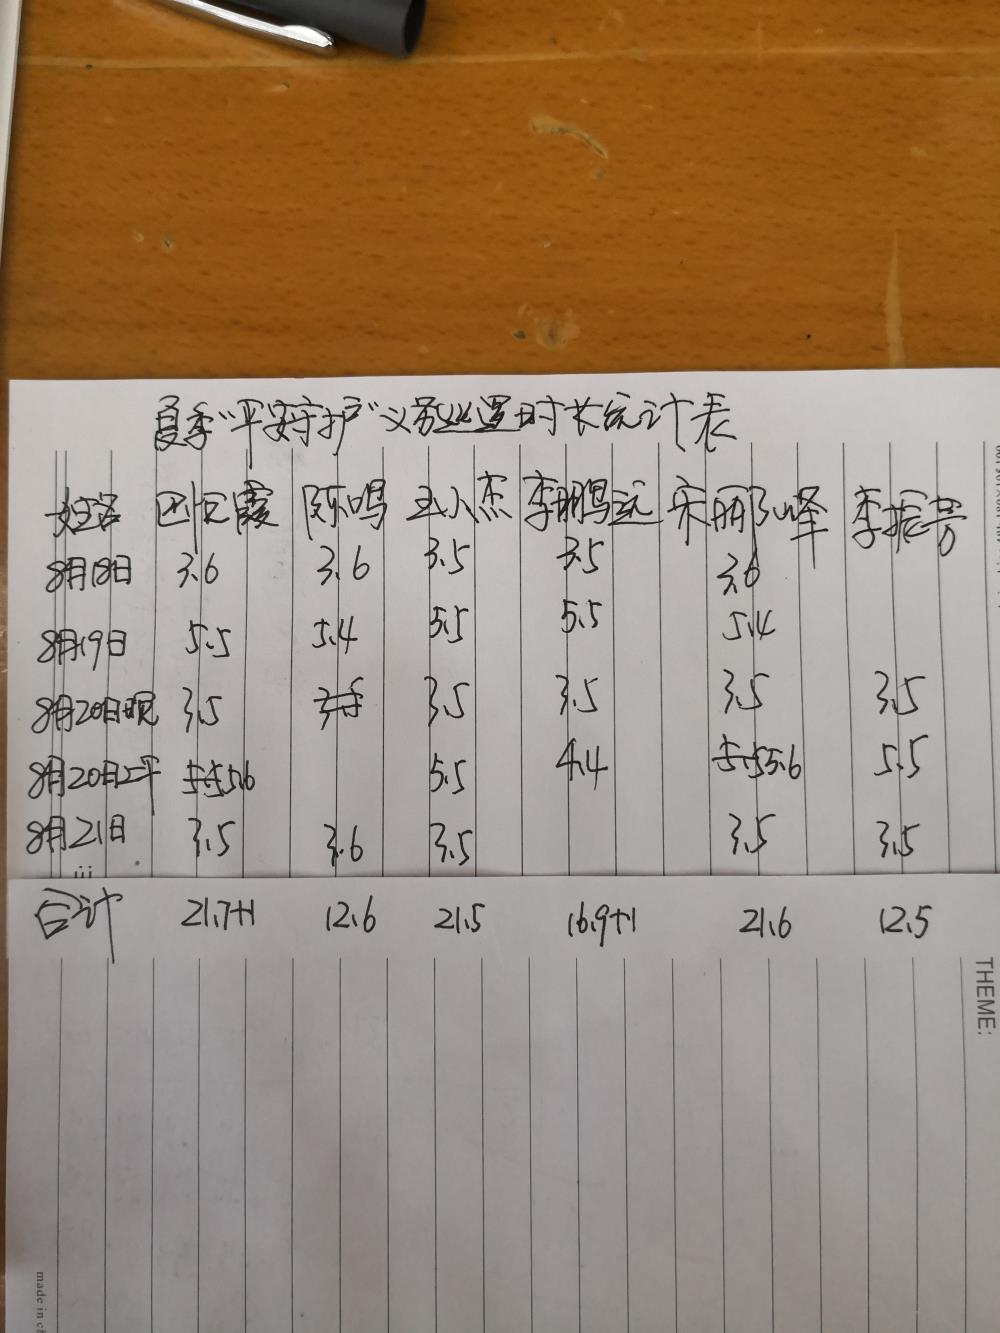 夏季"平安守护"义务巡逻时长统计表
姓名 霞 陈鸣 王小杰 李鹏远 宋丽 峰 李振芳
8月18日 3.6 3.6 3.5 3.5 3.6
8月19日 5.5 5.4 5.5 5.5 5.4
8月20日晚 3.5 3.5 3.5 3.5 3.5 3.5
8月20日上午 5.5 5.6 5.5 4.4 5.5 5.6 5.5
8月21日 3.5 3.6 3.5 3.5 3.5
合计 21.7+1 12.6 21.5 16.9+1 21.6 12.5
THEME:
made in ch